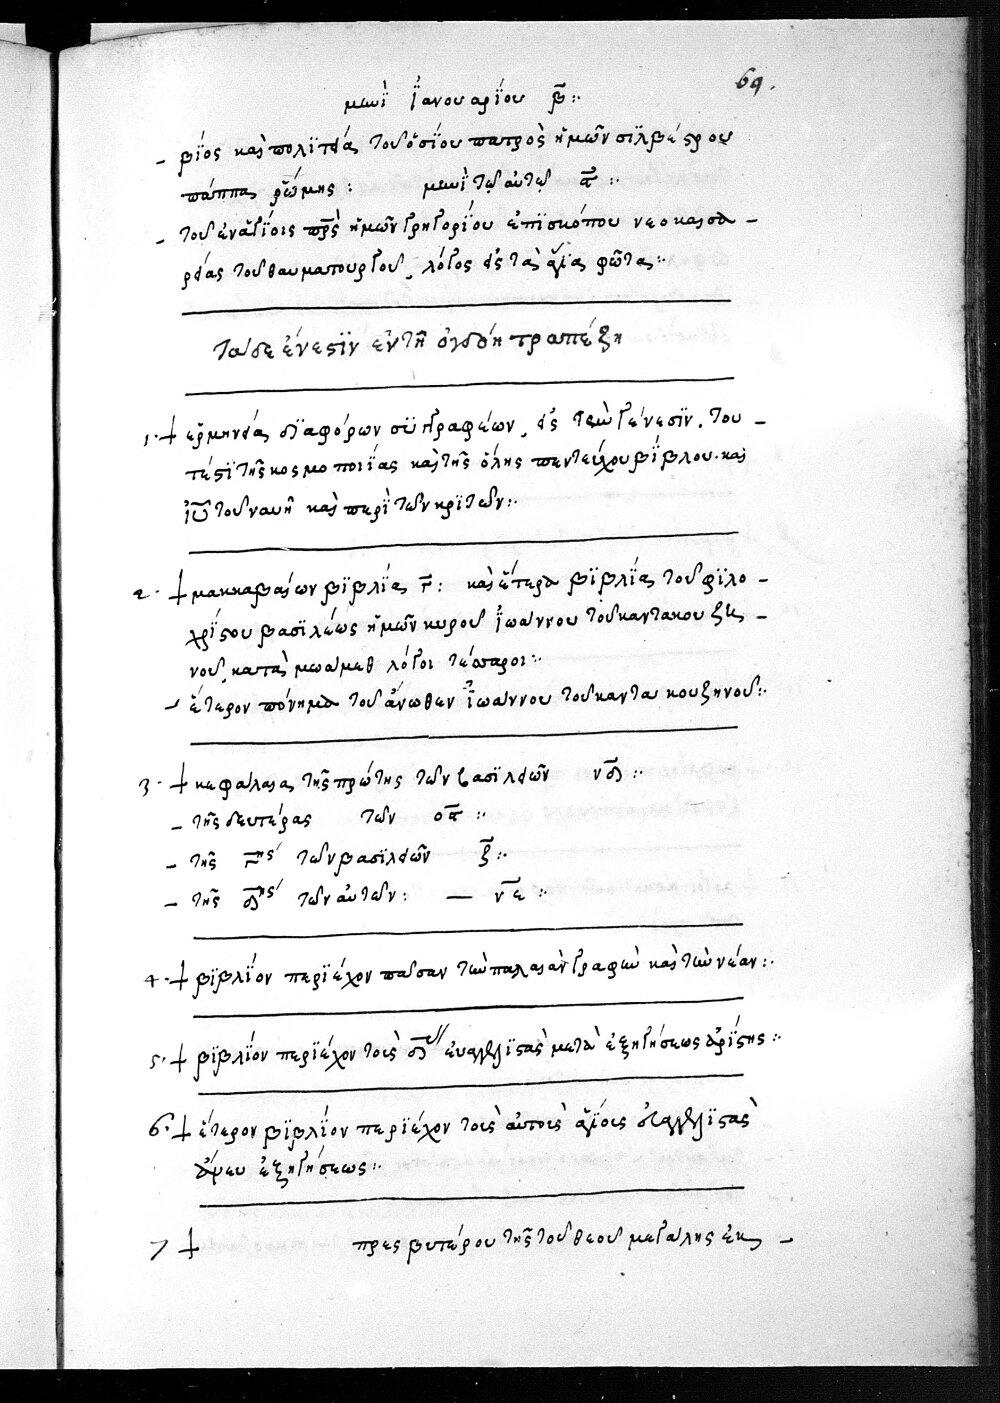 69.
μηνὶ ἰανουαρίου β̅ :
– βίος καὶ πολιτεία τοῦ ὁσίου πατρὸς ἡμῶν σιλβέστρου
πάππα ῥώμης : μηνὶ τῷ αὐτῷ α̅ :
– τοῦ ἐν ἁγίοις πρ̅ς ἡμῶν γρηγορίου ἐπισκόπου νεοκαισα –
ρείας τοῦ θαυματουργοῦ, λόγος εἰς τὰ ἅγια φῶτα :
Τάδε ἔνεστιν ἐν τῇ ὀγδόῃ τραπέζῃ
1· + ἑρμηνείας διαφόρων συγγραφέων, εἰς τὴν γένεσιν. του –
τέστι τῆς κοσμοποιίας καὶ τῆς ὅλης πεντεύχου βίβλου· καὶ
ἰῦ τοῦ ναυῆ καὶ περὶ τῶν κριτῶν :
2· + μακκαβαίων βιβλία γ̅ : καὶ ἕτερα βιβλία τοῦ φιλο –
χρίστου βασιλέως ἡμῶν κυροῦ ἰωάννου τοῦ καντακουζη –
νοῦ, κατὰ μωάμεθ λόγοι τέσσαροι :
– ἕτερον πόνημα τοῦ ἄνωθεν ἰωάννου τοῦ καντακουζηνοῦ :
3· + κεφάλαια τῆς πρώτης τῶν βασιλειῶν νδ̅ :
– τῆς δευτέρας τῶν οα̅ :
– τῆς γ̅ης τῶν βασιλειῶν ξ̅ :
– τῆς δ̅ης τῶν αὐτῶν : — νε̅ :
4· + βιβλίον περιέχον πᾶσαν τὴν παλαιὰν γραφὴν καὶ τὴν νέαν :
5· + βιβλίον περιέχον τοὺς δ̅ εὐαγγελιστὰς μετὰ ἐξηγήσεως ἀρίστης :
6· + ἕτερον βιβλίον περιέχον τοὺς αὐτοὺς ἁγίους εὐαγγελιστὰς
ἄνευ ἐξηγήσεως :
7 + πρεσβυτέρου τῆς τοῦ θεοῦ μεγάλης ἐκ –